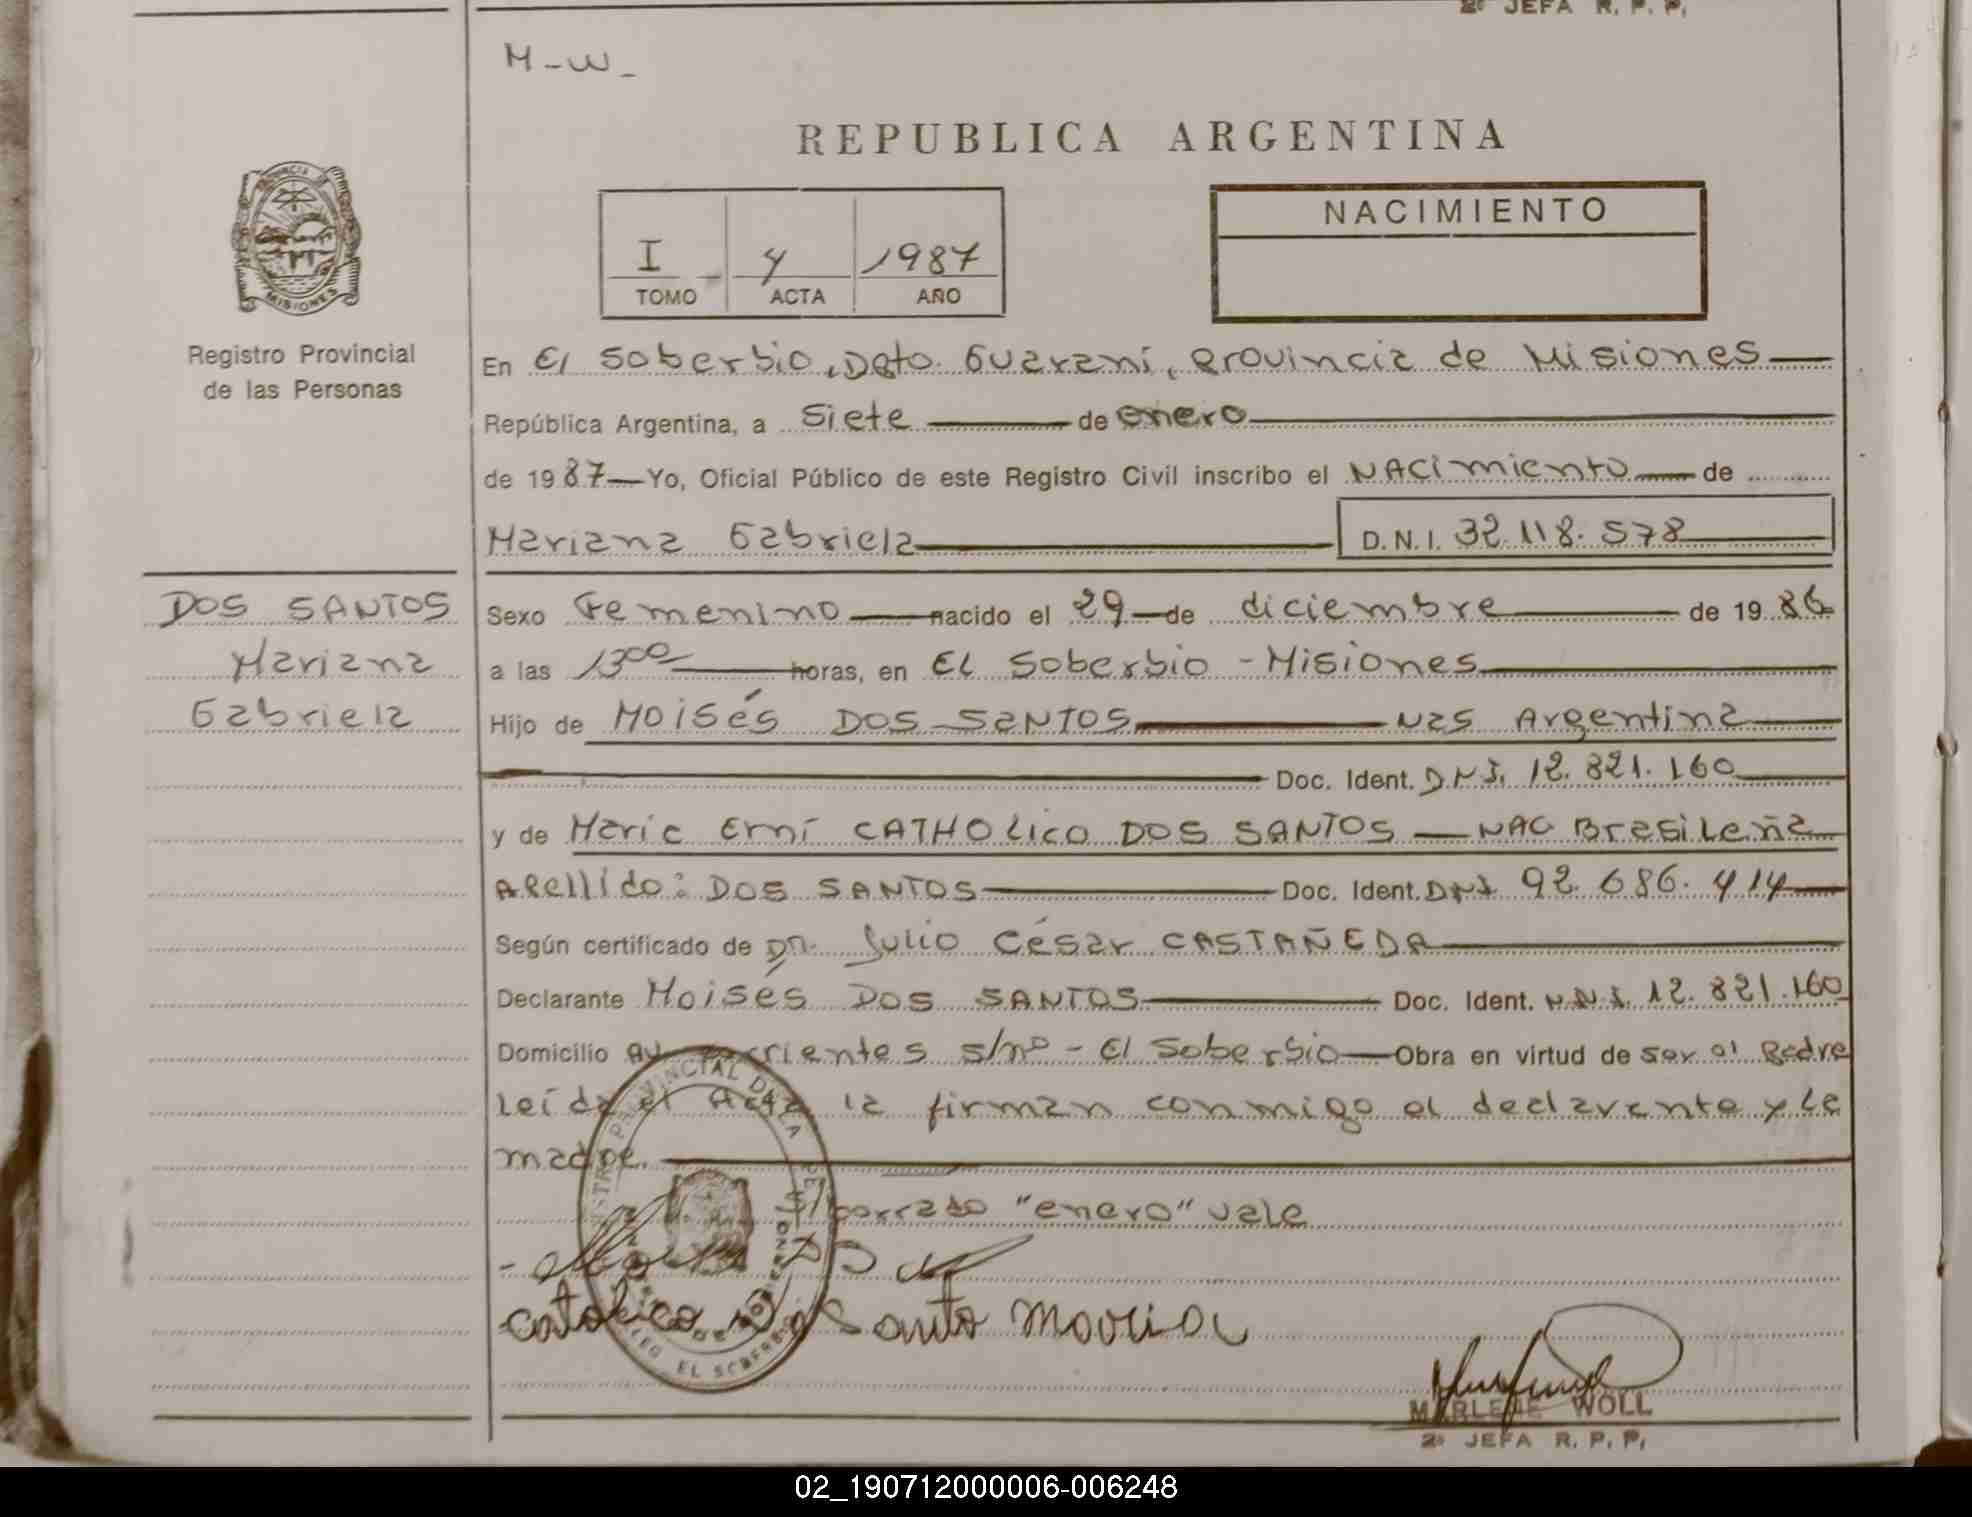 2º JEFA R. P. P.
M-W-
REPUBLICA ARGENTINA
PROVINCIA DE
MISIONES
I 4 1987
TOMO ACTA AÑO
NACIMIENTO
Registro Provincial
de las Personas
En El Soberbio, Dpto. Guaraní, Provincia de Misiones
República Argentina, a Siete de enero
de 1987 Yo, Oficial Público de este Registro Civil inscribo el NACimiento de
Mariana Gabriela D.N.I. 32.118.578
DOS SANTOS
Mariana
Gabriela
Sexo Femenino nacido el 29 de diciembre de 1986
a las 13⁰⁰ horas, en El Soberbio - Misiones
Hijo de Moisés DOS SANTOS Nac Argentina
Doc. Ident. D.N.I. 12.821.160
y de Maria Erní CATHOLico DOS SANTOS NAC Brasileña
Apellido: DOS SANTOS Doc. Ident. DNI 92.686.414
Según certificado de Dr. Julio César CASTAÑEDA
Declarante Moisés DOS SANTOS Doc. Ident. D.N.I. 12.821.160
Domicilio Av. Corrientes s/nº - El Soberbio Obra en virtud de ser el Padre
Leída el Acta, la firman conmigo el declarante y la
madre.
S/borrado "enero" vale
Catolico Dos Santo Maria
EL SOBERBIO
MARLENE WOLL
2º JEFA R. P. P.
02_190712000006-006248